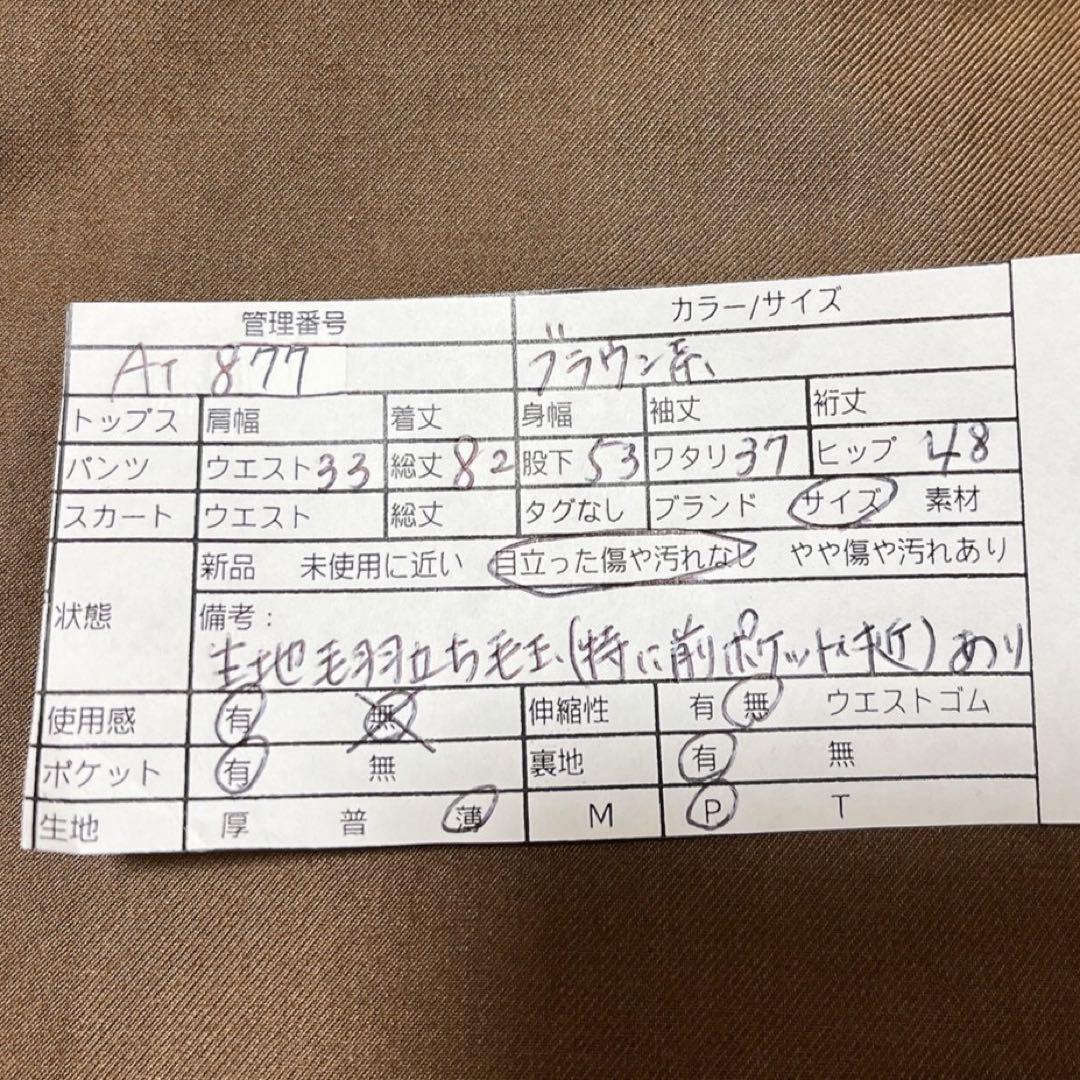 管理番号 カラー/サイズ
AT 877 ブラウン系
トップス 肩幅 着丈 身幅 袖丈 裄丈
パンツ ウエスト33 総丈82 股下53 ワタリ37 ヒップ48
スカート ウエスト 総丈 タグなし ブランド サイズ 素材
状態 新品 未使用に近い 目立った傷や汚れなし やや傷や汚れあり
備考:
生地毛羽立ち毛玉(特に前ポケット付近)あり
使用感 有 無 伸縮性 有 無 ウエストゴム
ポケット 有 無 裏地 有 無
生地 厚 普 薄 M P T